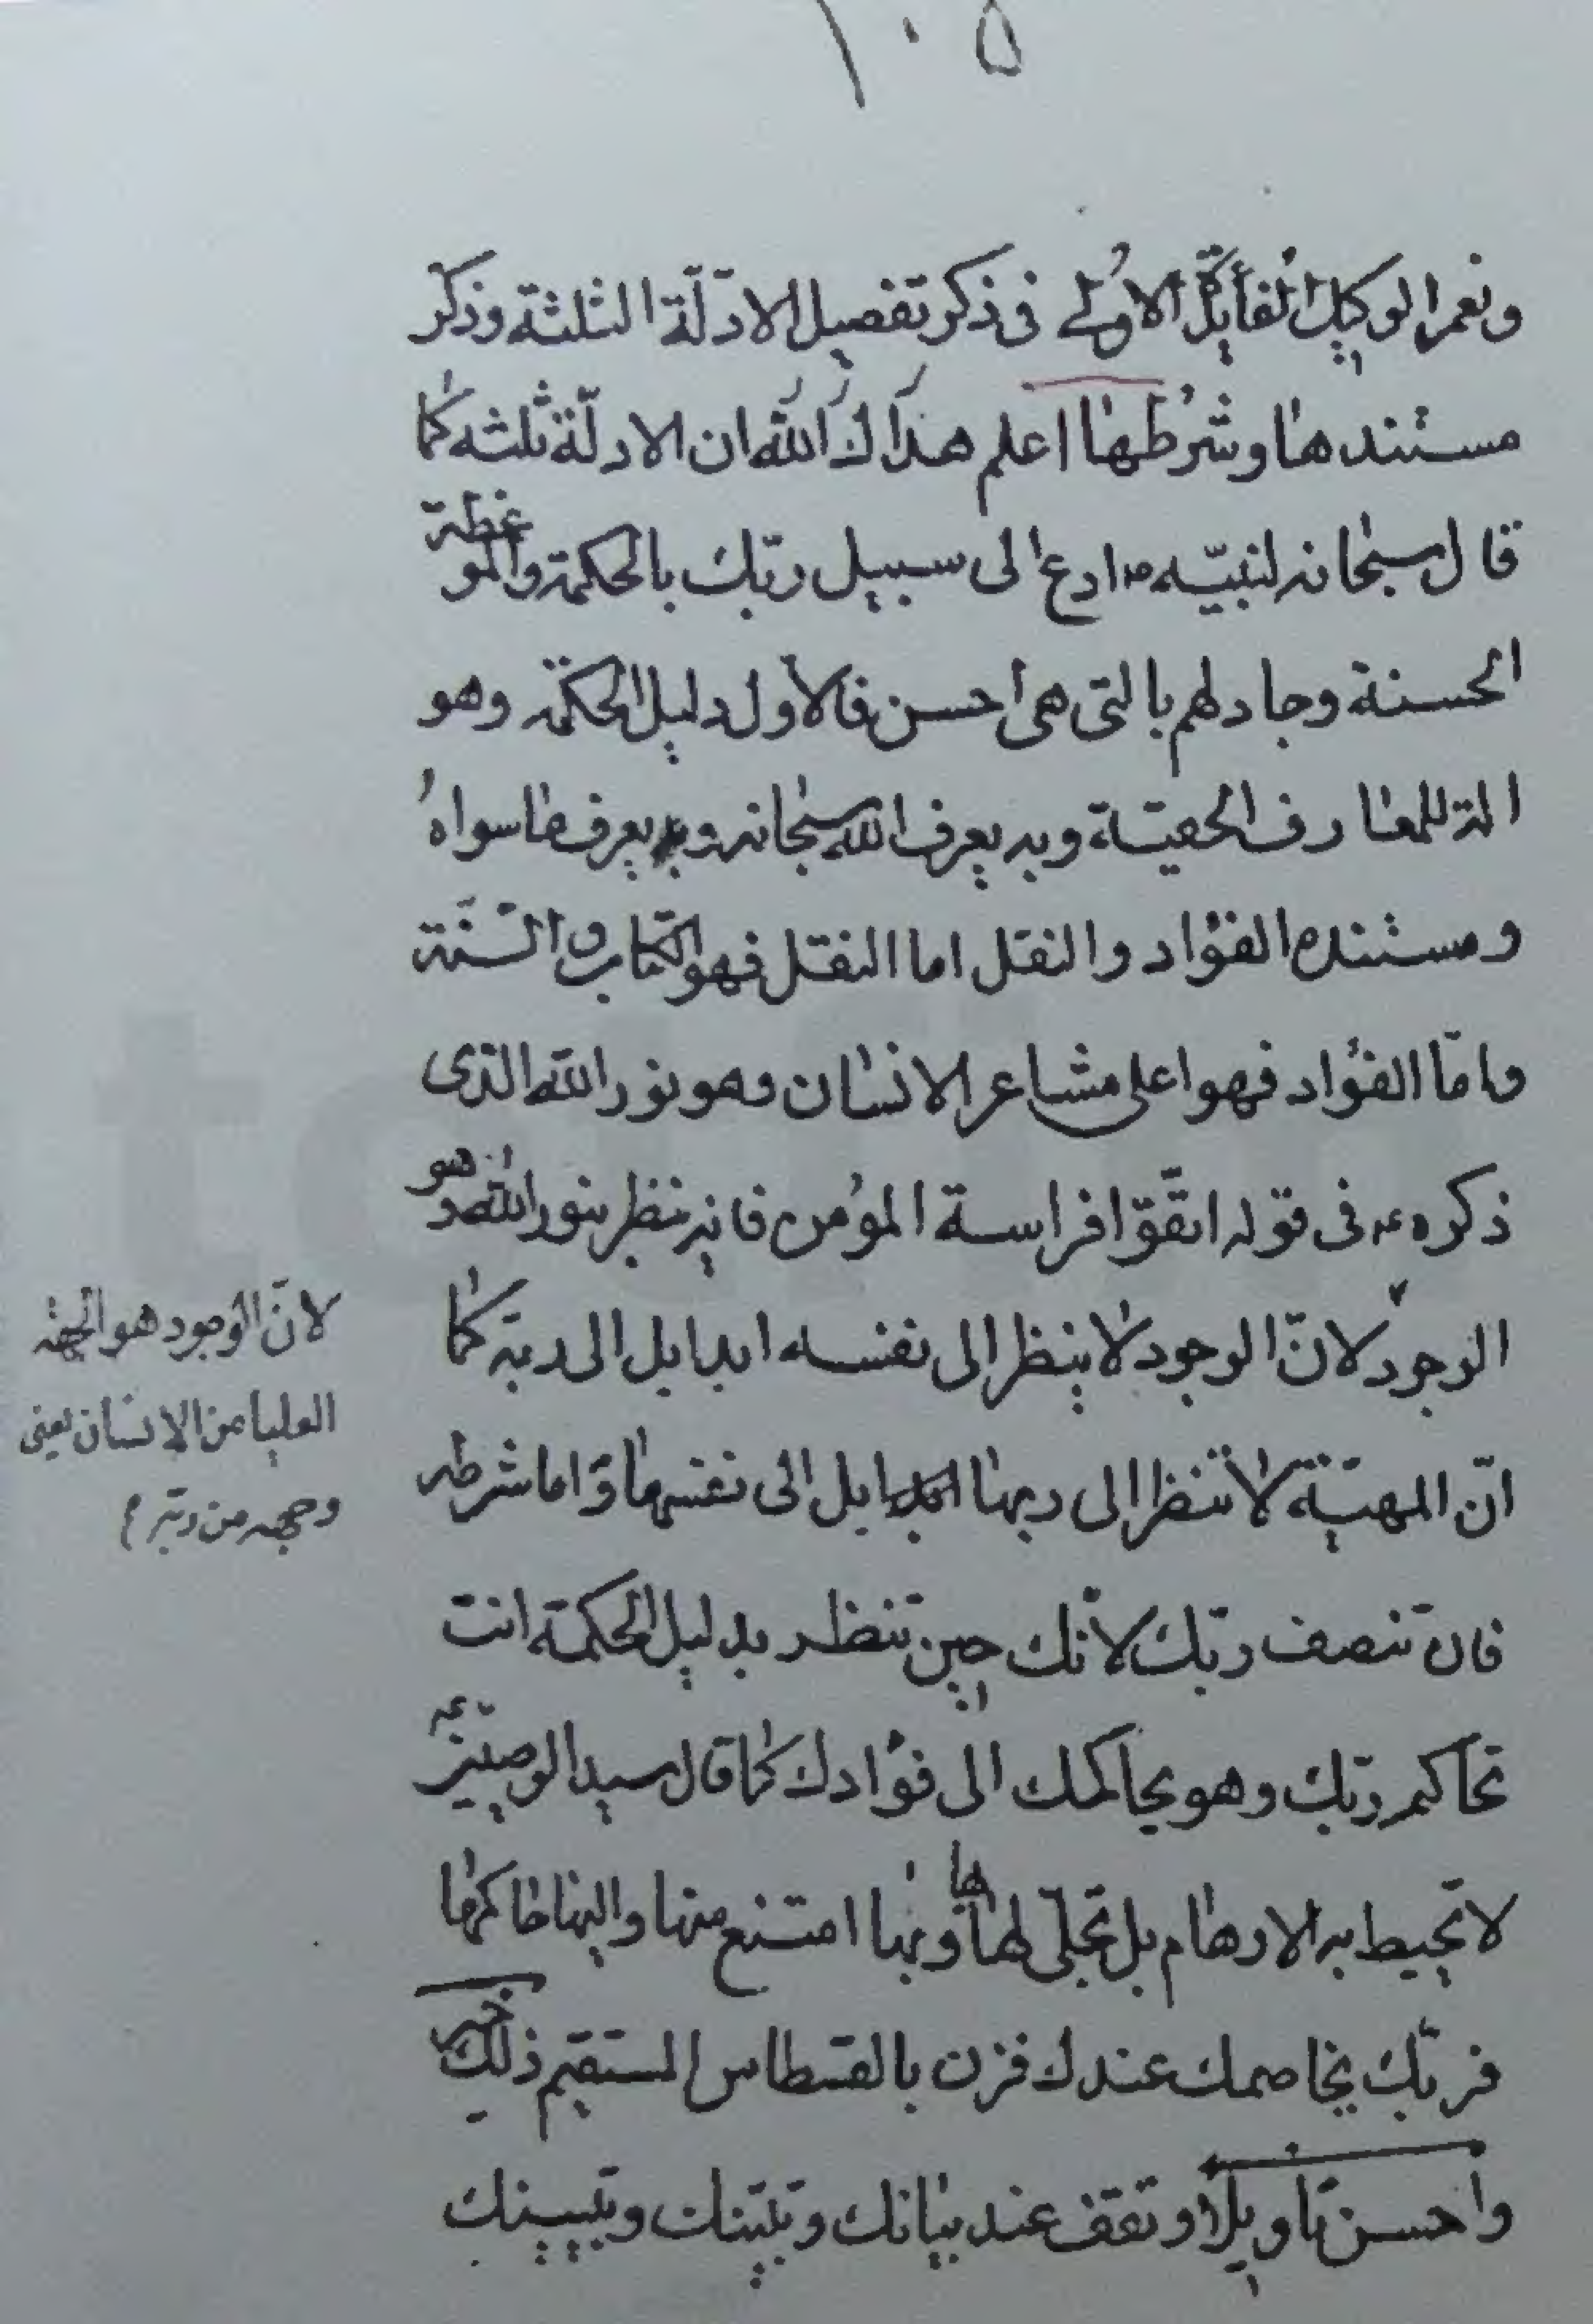 ١٠٥
ونعم الوكيل الفائدة الاولى فى ذكر تفصيل الادلّة الثلثة وذكر
مستندها وشرطها اعلم هداك الله ان الادلّة ثلثه كما
قال سبحانه لنبيّه ص ادع الى سبيل ربّك بالحكمة والموعظة
الحسنة وجادلهم بالتى هى أحسن فالأول دليل الحكمة وهو
الة للمعارف الحقيّة وبه يعرف الله سبحانه وبه يعرف ما سواه
ومستنده الفؤاد والنقل اما النقل فهو الكتاب والسنّة
وامّا الفؤاد فهو اعلى مشاعر الانسان وهو نور الله الذى
ذكره ع فى قوله اتقوا فراسة المؤمن فانه ينظر بنور الله وهو
الوجود لانّ الوجود لا ينظر الى نفسه ابدا بل الى ربه كما
انّ المهيّة لا تنظر الى ربها ابدا بل الى نفسها وّاما شرطه
فان تنصف ربّك لأنّك حين تنظر بدليل الحكمة انت
تحاكم ربّك وهو يحاكمك الى فؤادك كما قال سيد الوصيّين ع
لا تحيط به الاوهام بل تجلّى لها بها وبها امتنع منها واليها حاكمها
فربّك يخاصمك عندك فزن بالقسطاس المستقيم ذلك خير
وأحسن تأويلا وتقف عند بيانك وتبيّنك وتبيينك
لانّ الوجود هو الجهة
العليا من الانسان يعنى
وجهه من ربّه